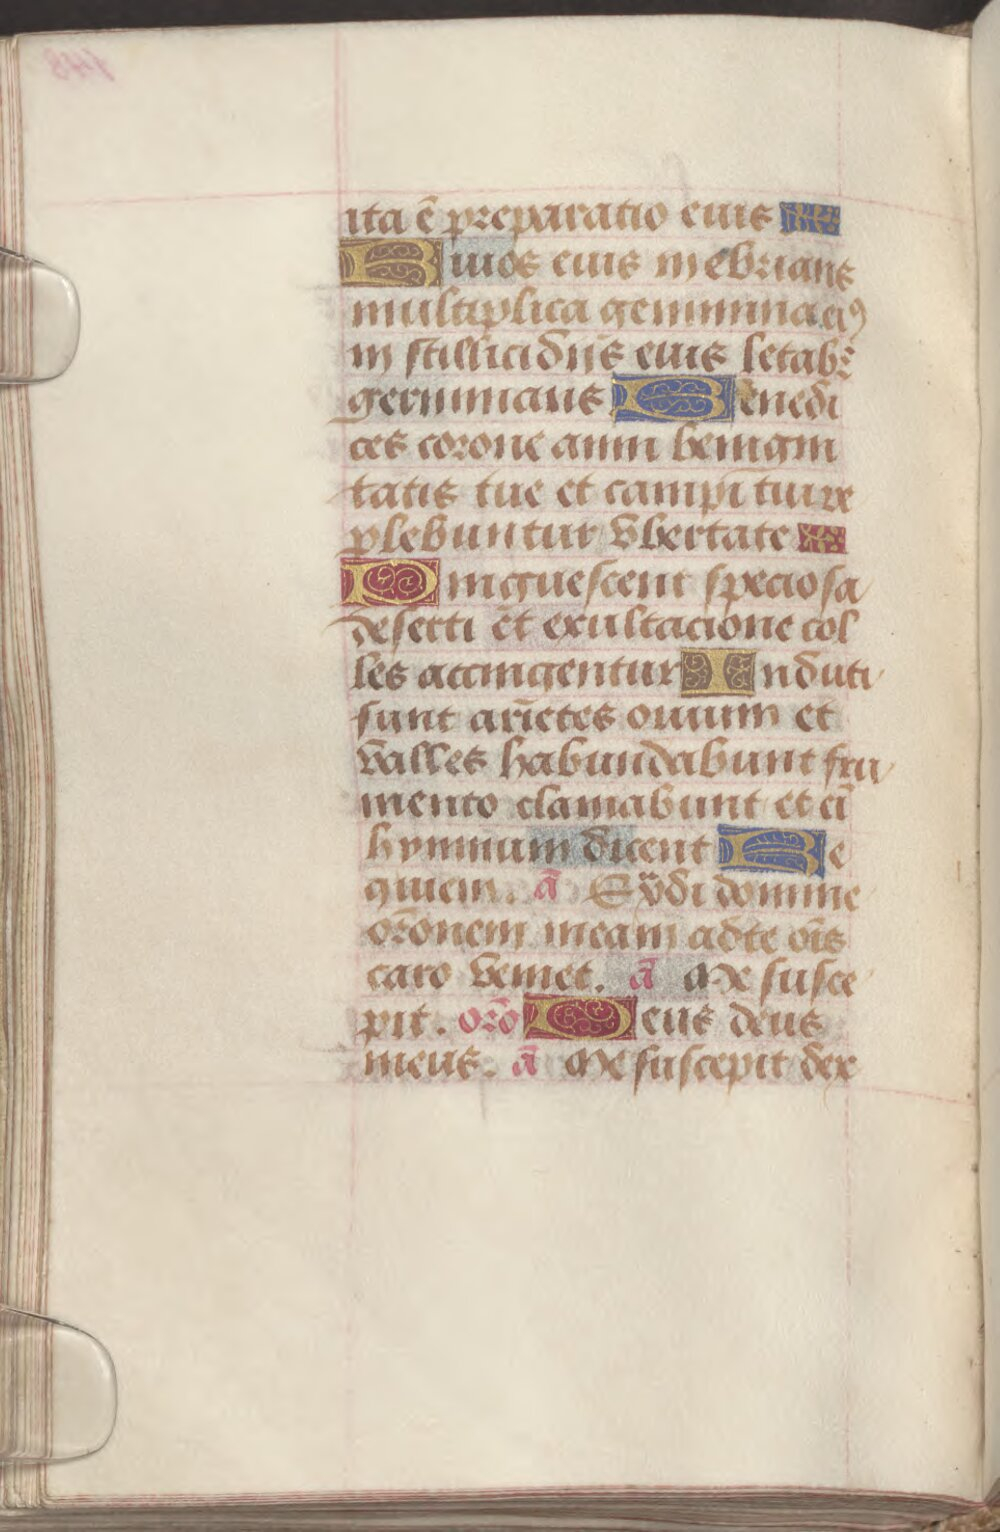 ita ē preparatio eius
Riuos eius inebrians
multiplica genimina eiꝰ
in stillicidiis eius letabr̄
germinans Benedi
ces corone anni benigni
tatis tue et campi tui re
plebuntur vbertate
Pinguescent speciosa
deserti et exultacione col
les accingentur Induti
sunt arietes ouium et
valles habundabunt fru
mento clamabunt et ei
hymnum dicent Re
quiem. ā Exaudi domine
orōnem meam ad te oīs
caro veniet. ā Me susce
pit. oro Deus deus
meus. ā Me suscepit dex